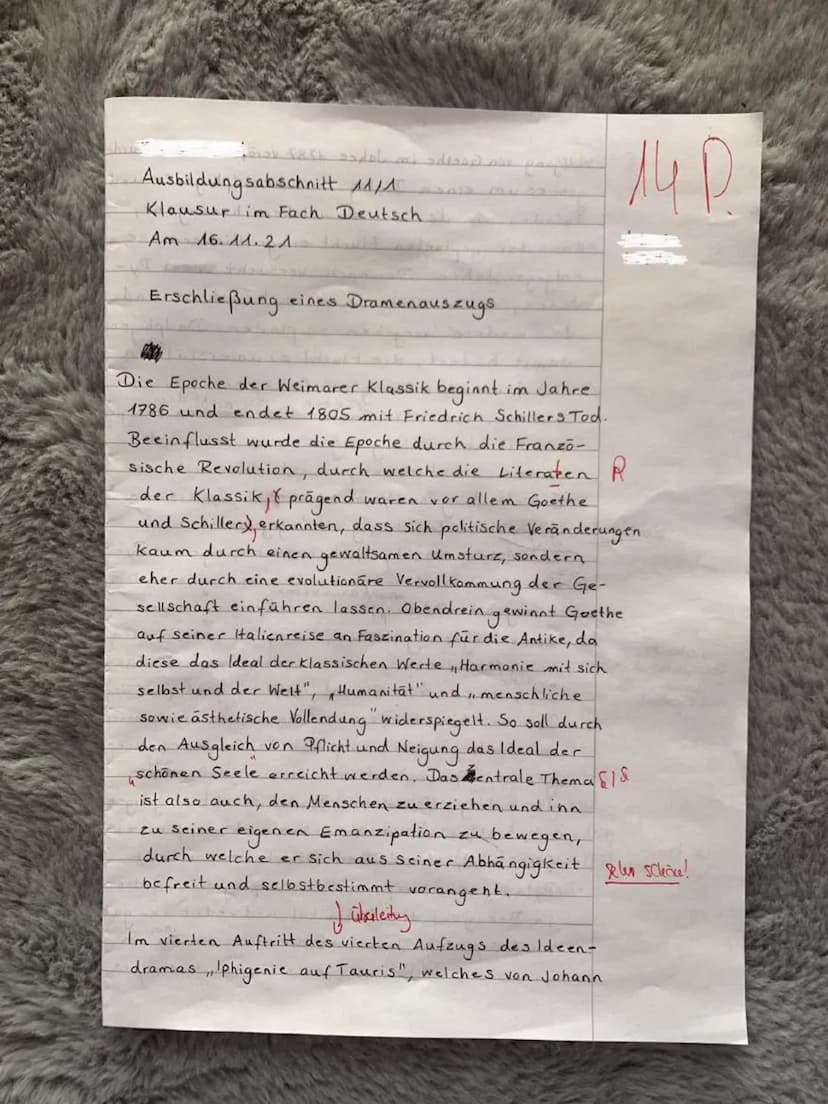 14 P.
Ausbildungsabschnitt 11/1
Klausur im Fach Deutsch
Am 16.11.21
Erschließung eines Dramenauszugs
Die Epoche der Weimarer Klassik beginnt im Jahre
1786 und endet 1805 mit Friedrich Schillers Tod.
Beeinflusst wurde die Epoche durch die Franzö-
sische Revolution, durch welche die Literaten R
der Klassik, prägend waren vor allem Goethe
und Schiller), erkannten, dass sich politische Veränderungen
kaum durch einen gewaltsamen Umsturz, sondern
eher durch eine evolutionäre Vervollkommung der Ge-
sellschaft einführen lassen. Obendrein gewinnt Goethe
auf seiner Italienreise an Faszination für die Antike, da
diese das Ideal der klassischen Werte „Harmonie mit sich
selbst und der Welt", „Humanität" und „menschliche
sowie ästhetische Vollendung" widerspiegelt. So soll durch
den Ausgleich von Pflicht und Neigung das Ideal der
„schönen Seele" erreicht werden. Das zentrale Thema
ist also auch, den Menschen zu erziehen und inn
zu seiner eigenen Emanzipation zu bewegen,
durch welche er sich aus seiner Abhängigkeit sehr schön!
befreit und selbstbestimmt vorangeht.
↓ Überleitung
Im vierten Auftritt des vierten Aufzugs des Ideen-
dramas „Iphigenie auf Tauris", welches von Johann